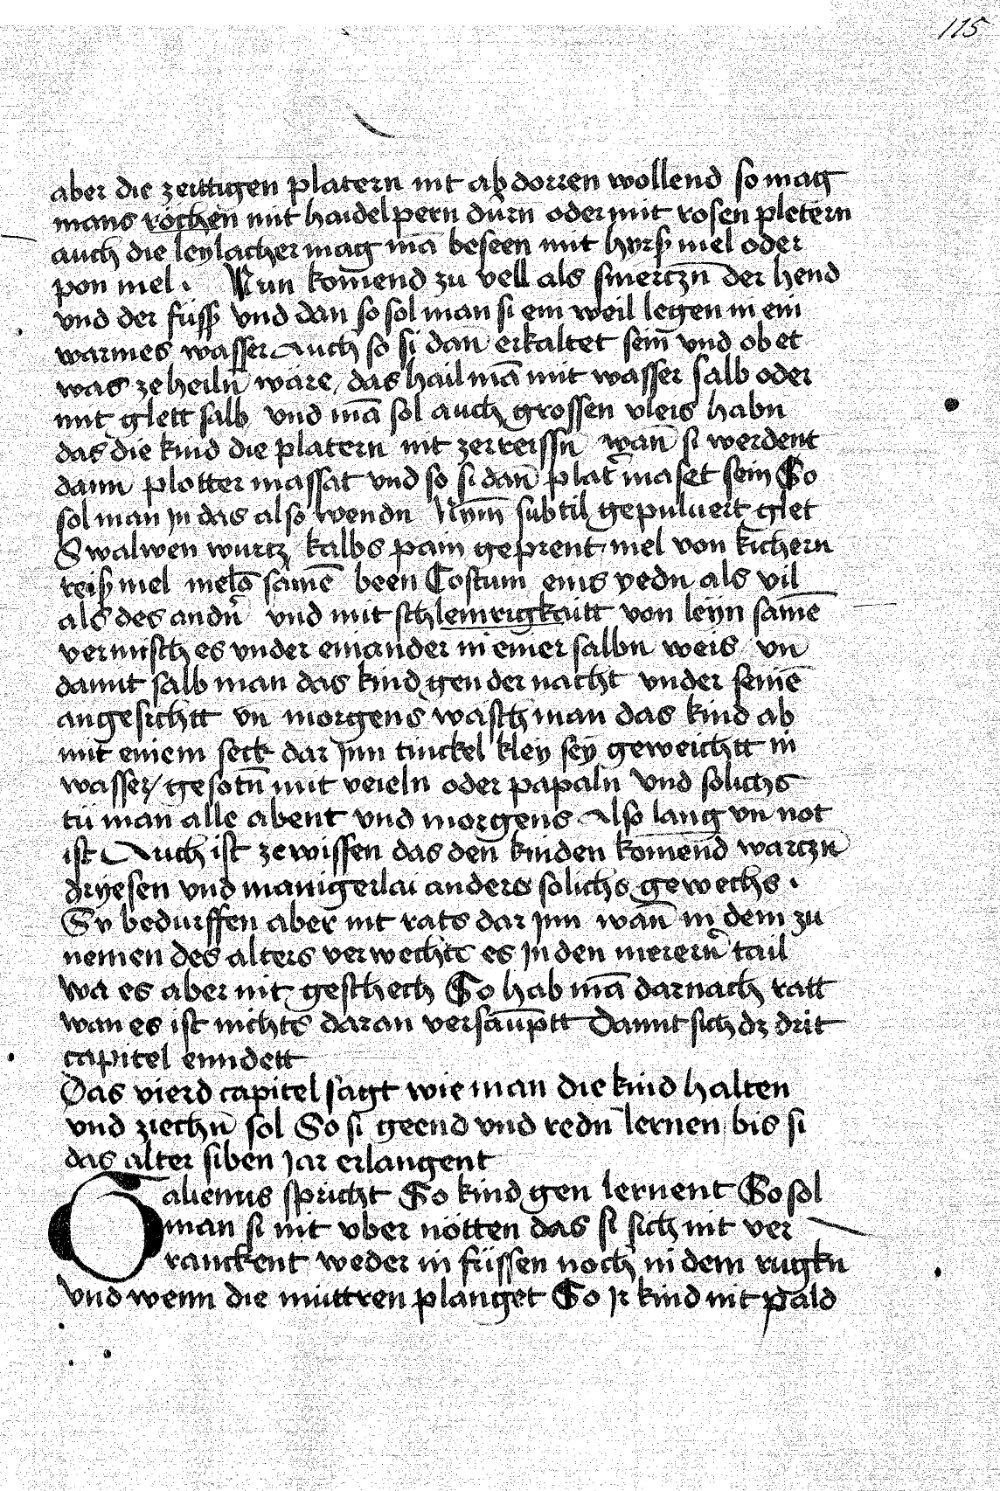 115
aber die zeittigen platern nit ab dorren wollend so mag
mans rochen mit haidelpern durn oder mit rosen pletern
auch die leylacher mag mā beseen mit hyrß mel oder
pon mel. Nun komend zu vell als smerczn̄ der hend
vnd der füss vnd dan so sol man si ein weil legen in ein
warmes wasser Auch so si dan̄ erkaltet sein̄ vnd ob et
was ze heiln̄ wäre, das hail mā mit wasser salb oder
mit glett salb vnd mā sol auch grossen vleis habn
das die kind die platern nit zerreissn̄ wan̄ si werdent
dann plotter massat vnd so si dan̄ plat͛ maset sein So
sol man jn das also wendn Nym̄ subtil gepuluert glet
Swalwen wurtz kalbs pain geprent, mel von kichern
reiß mel melō samē been Costum eins yedn als vil
als des andn͛ vnd mit schleimrigkaitt von leyn samē
vermisch es vnder einander in einer salbn weis vn̄
damit salb man das kind gen der nacht vnder seinē
angesichtt vn̄ morgens wasch man das kind ab
mit einem seck dar jnn tinckel kley sey geweichtt in
wasser/ gesotn̄ mit veieln oder papaln vnd solichs
tü man alle abent vnd morgens Also lang vn̄ not
ist Auch ist ze wissen das den̄ kinden komend warczn̄
dryesen vnd manigerlai anders solichs gewechs.
Sy bedurffen aber nit rats dar jnn wan̄ in dem zu
nemen des alters verwechts es jn den merern͛ tail
wa es aber nit geschech So hab mā darnach ratt
wan es ist nichts daran versaūptt Damit sich dz drit
capitel enndett
Das vierd capitel sagt wie man die kind halten
vnd ziechn̄ sol So si geend vnd redn̄ lernen bis si
das alter siben jar erlangent
Galienus spricht So kind gen lernent So sol
man si nit vber nötten das si sich nit ver
ranckent weder in füssen noch in dem rugkn
vnd wenn die müttren planget So jr kind nit pald